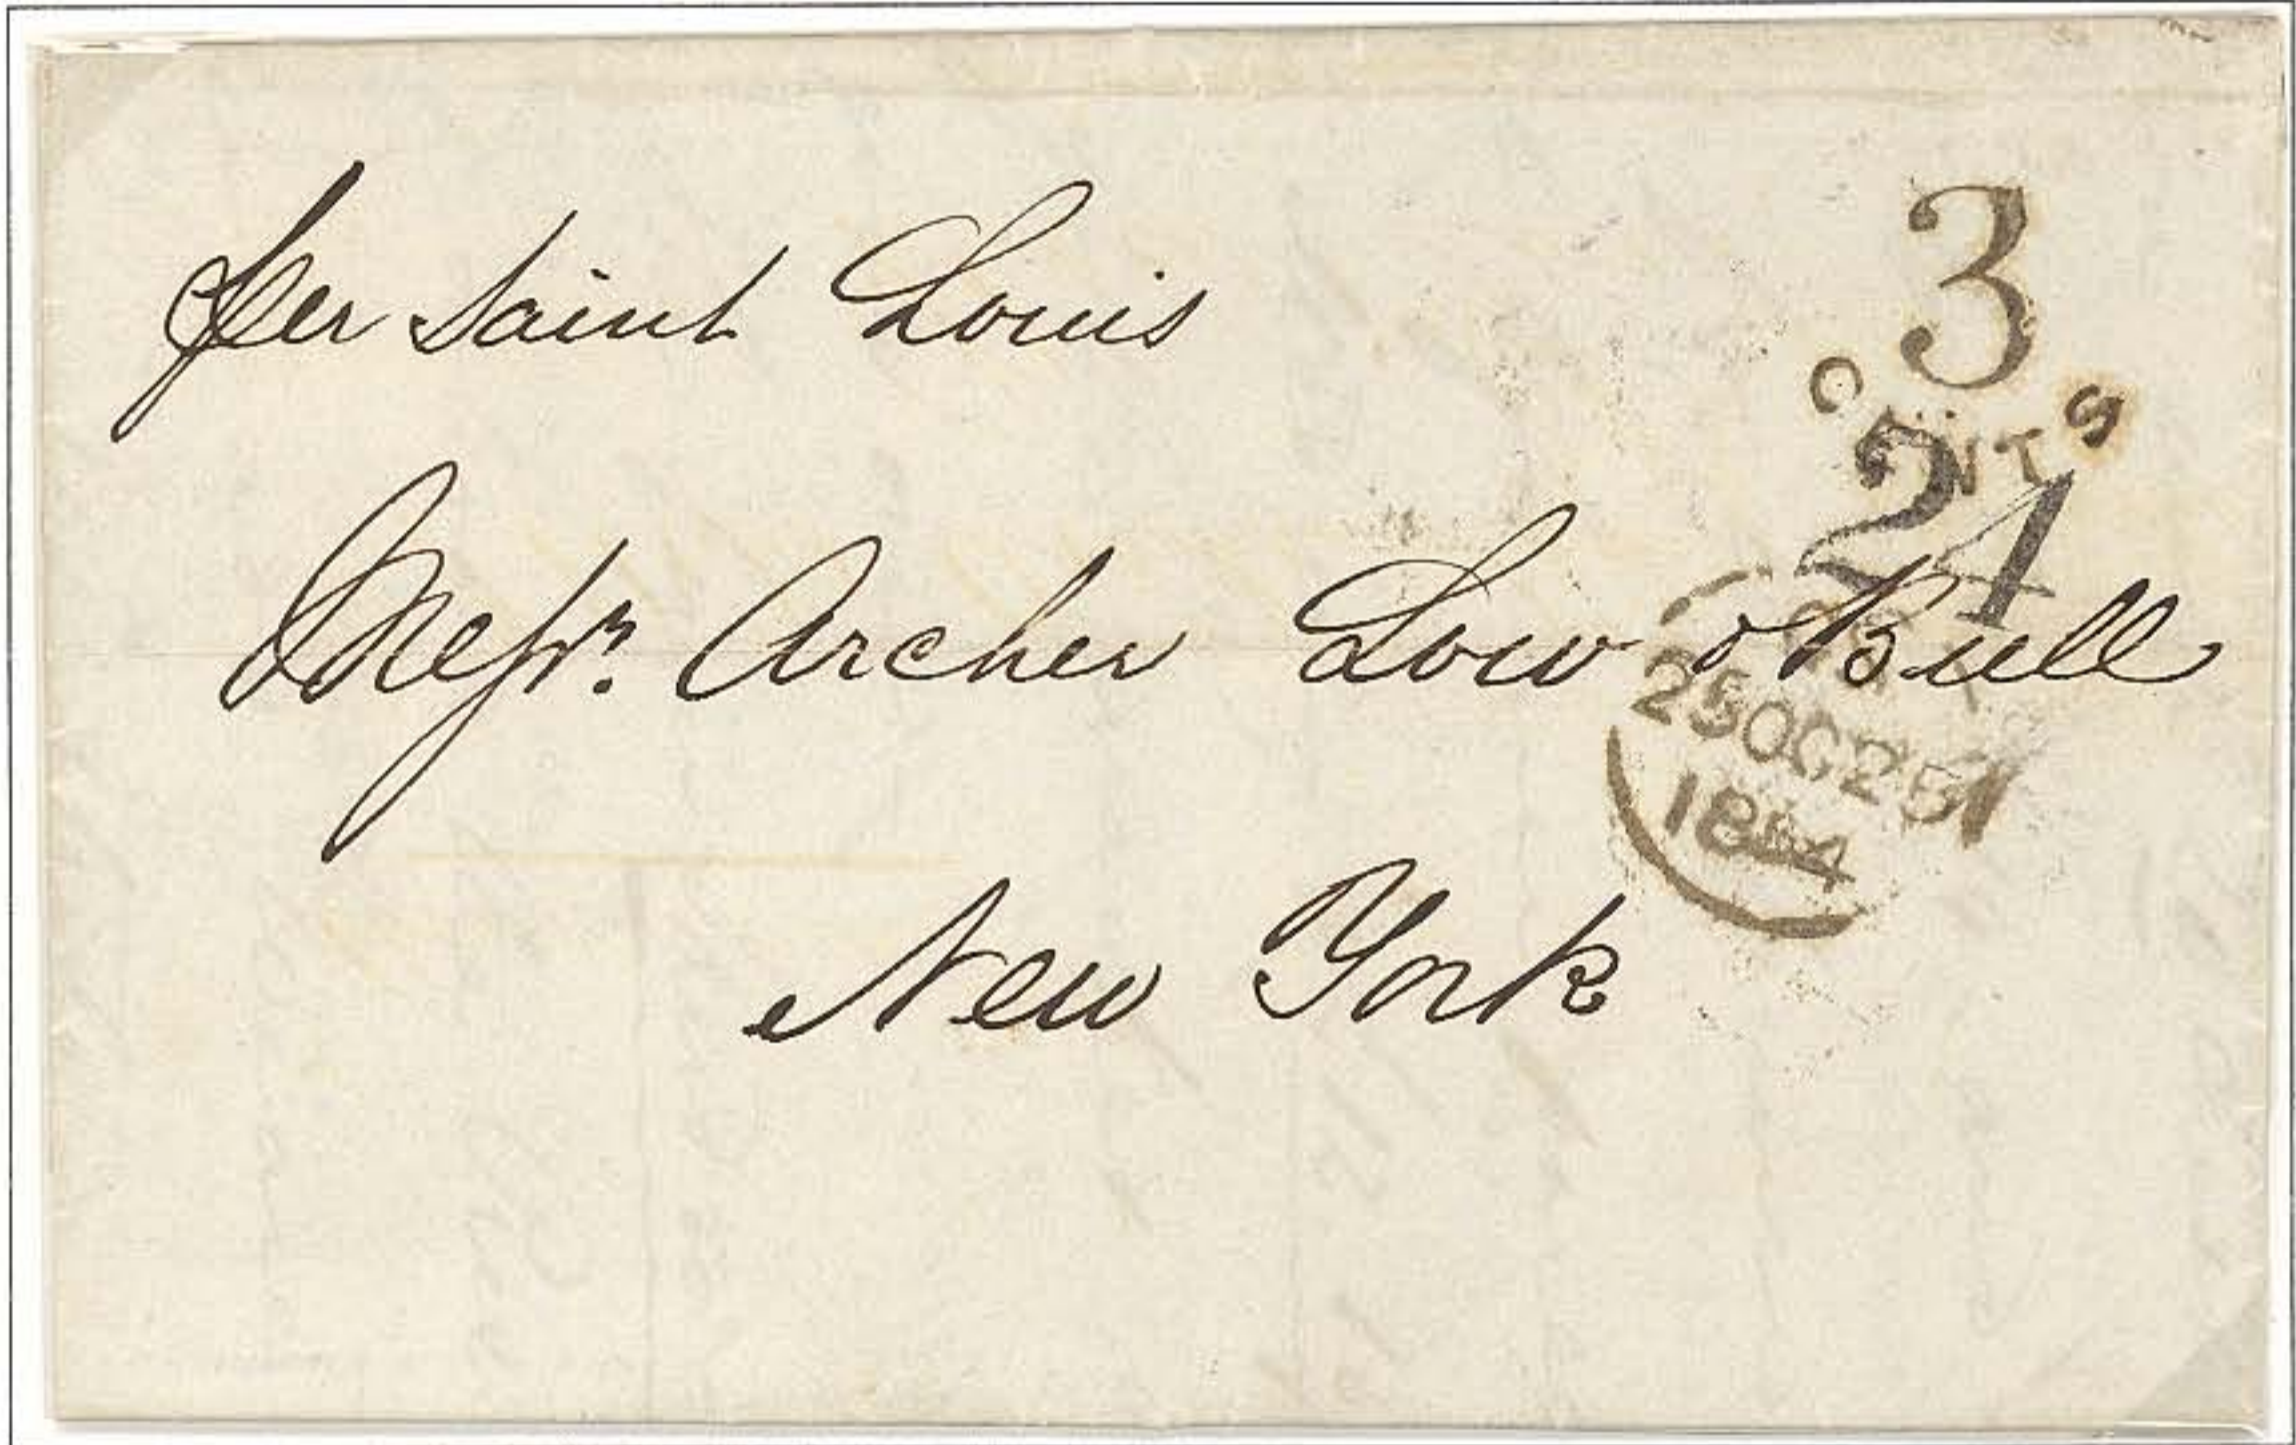 per Saint Louis
3
CENTS
24
Messrs. Archer Low & Bull
25 OC 25
1854
New York